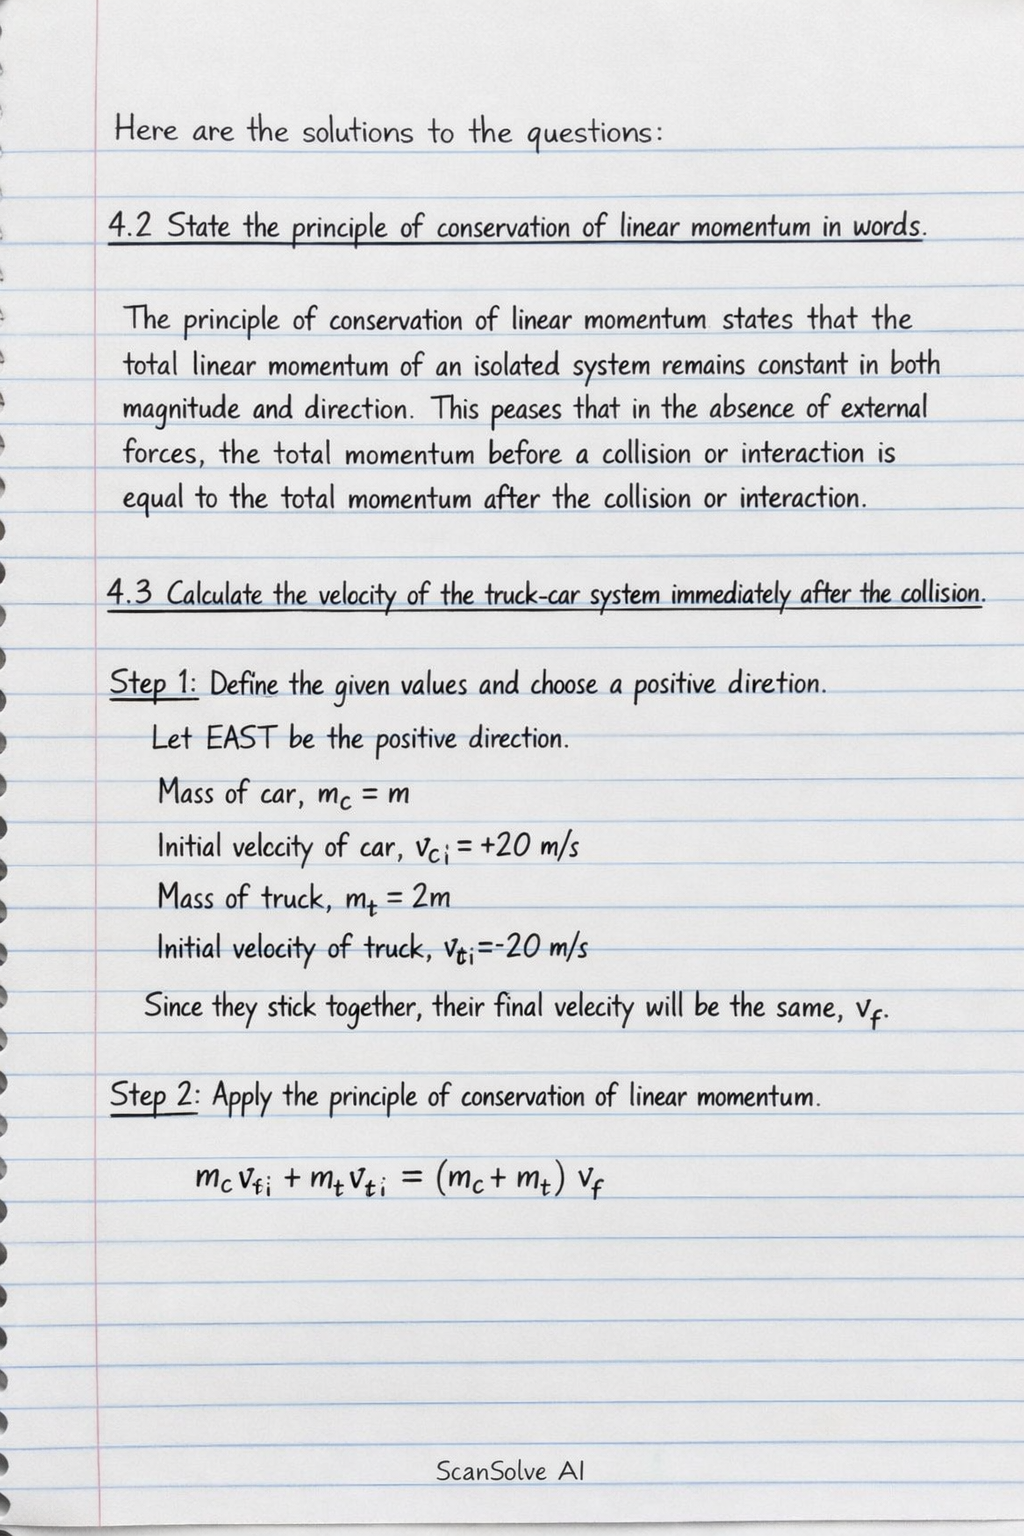 Here are the solutions to the questions:
4.2 State the principle of conservation of linear momentum in words.
The principle of conservation of linear momentum states that the
total linear momentum of an isolated system remains constant in both
magnitude and direction. This peases that in the absence of external
forces, the total momentum before a collision or interaction is
equal to the total momentum after the collision or interaction.
4.3 Calculate the velocity of the truck-car system immediately after the collision.
Step 1: Define the given values and choose a positive diretion.
Let EAST be the positive direction.
Mass of car, m_c = m
Initial velccity of car, v_ci = +20 m/s
Mass of truck, m_t = 2m
Initial velocity of truck, v_ti=-20 m/s
Since they stick together, their final velecity will be the same, v_f.
Step 2: Apply the principle of conservation of linear momentum.
m_c v_fi + m_t v_ti = (m_c + m_t) v_f
ScanSolve AI